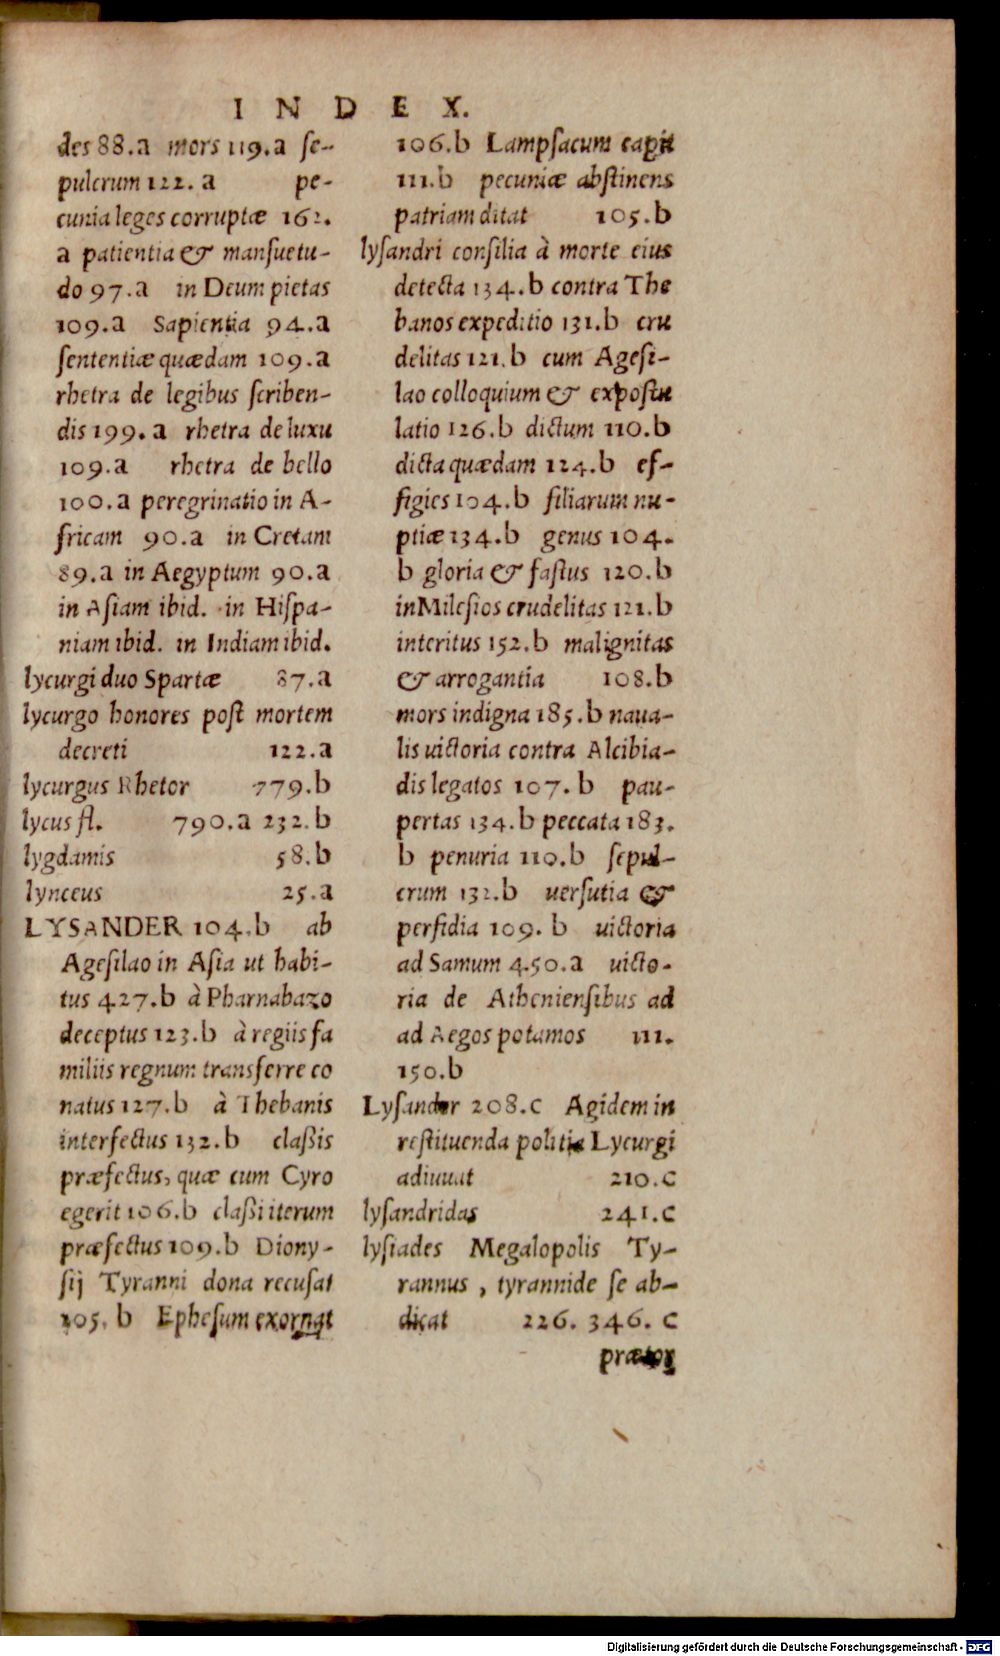 INDEX.
des 88.a mors 119.a se-
pulcrum 122. a pe-
cunia leges corruptæ 162.
a patientia & mansuetu-
do 97.a in Deum pietas
109.a Sapientia 94.a
sententiæ quædam 109.a
rhetra de legibus scriben-
dis 199. a rhetra de luxu
109.a rhetra de bello
100.a peregrinatio in A-
fricam 90.a in Cretam
89.a in Aegyptum 90.a
in Asiam ibid. in Hispa-
niam ibid. in Indiam ibid.
lycurgi duo Spartæ 87.a
lycurgo honores post mortem
decreti 122.a
lycurgus Rhetor 779.b
lycus fl. 790.a 232.b
lygdamis 58.b
lynceus 25.a
LYSANDER 104.b ab
Agesilao in Asia ut habi-
tus 427.b à Pharnabazo
deceptus 123.b à regiis fa
miliis regnum transferre co
natus 127.b à Thebanis
interfectus 132.b claßis
præfectus, quæ cum Cyro
egerit 106.b claßi iterum
præfectus 109.b Diony-
sij Tyranni dona recusat
105. b Ephesum exornat
106.b Lampsacum capit
111.b pecuniæ abstinens
patriam ditat 105.b
lysandri consilia à morte eius
detecta 134.b contra The
banos expeditio 131.b cru
delitas 121.b cum Agesi-
lao colloquium & expostu
latio 126.b dictum 110.b
dicta quædam 124.b ef-
figies 104.b filiarum nu-
ptiæ 134.b genus 104.
b gloria & fastus 120.b
in Milesios crudelitas 121.b
interitus 152.b malignitas
& arrogantia 108.b
mors indigna 185.b naua-
lis uictoria contra Alcibia-
dis legatos 107. b pau-
pertas 134.b peccata 183.
b penuria 110.b sepul-
crum 132.b uersutia &
perfidia 109. b uictoria
ad Samum 450.a uicto-
ria de Atheniensibus ad
ad Aegos potamos 111.
150.b
Lysander 208.c Agidem in
restituenda politia Lycurgi
adiuuat 210.c
lysandridas 241.c
lysiades Megalopolis Ty-
rannus, tyrannide se ab-
dicat 226. 346. c
prætor
Digitalisierung gefördert durch die Deutsche Forschungsgemeinschaft - DFG